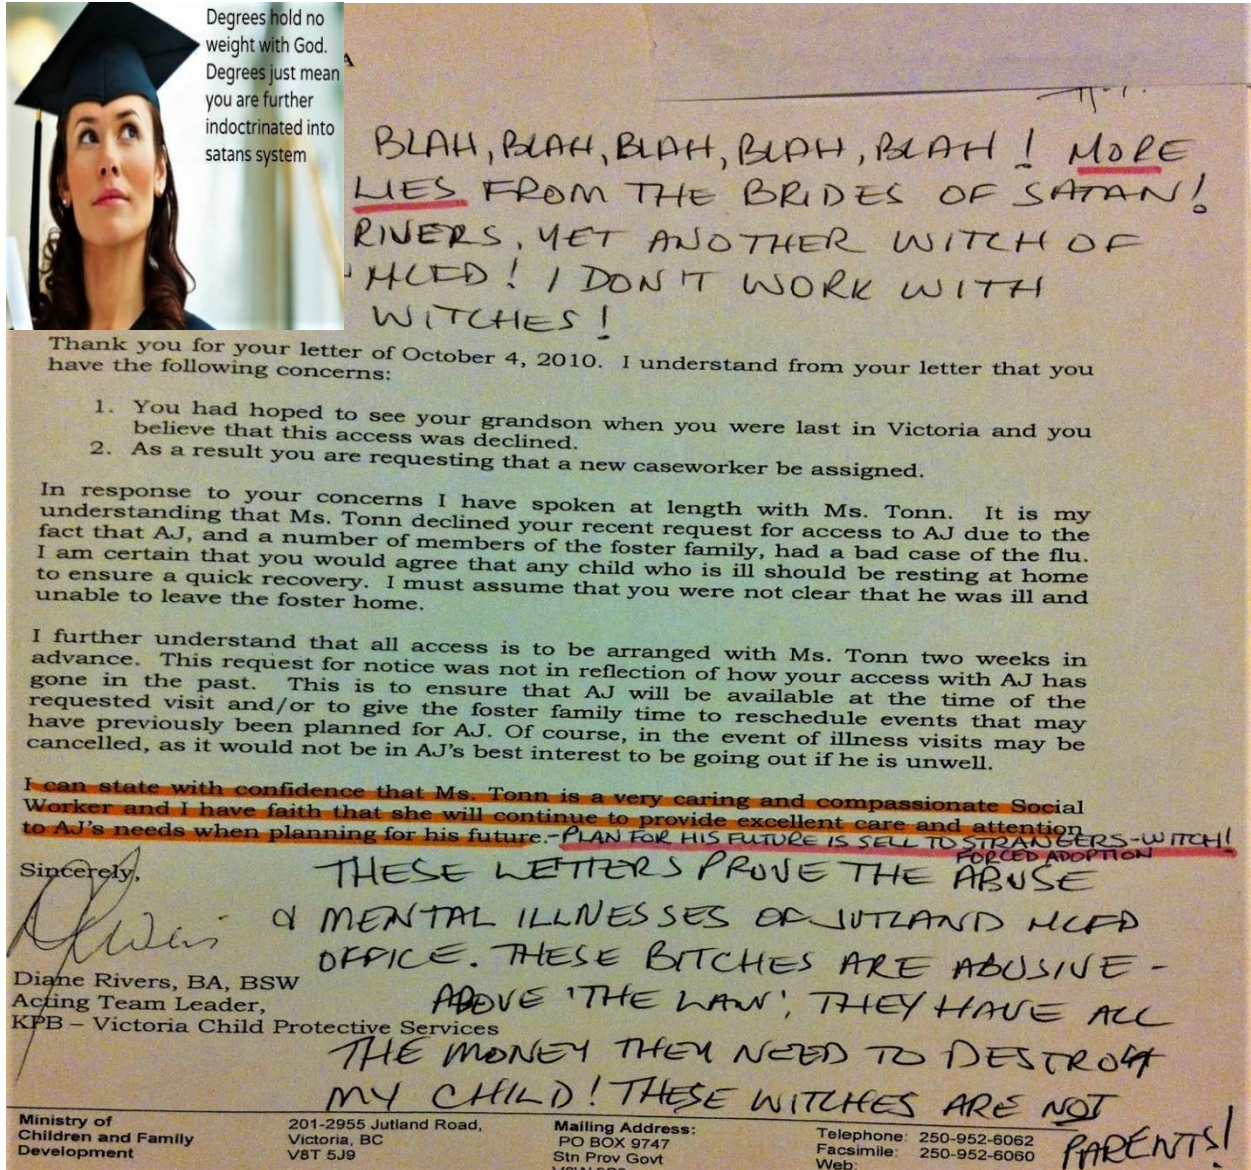 Degrees hold no
weight with God.
Degrees just mean
you are further
indoctrinated into
satans system
BLAH, BLAH, BLAH, BLAH, BLAH! MORE
LIES FROM THE BRIDES OF SATAN!
RIVERS, YET ANOTHER WITCH OF
MCFD! I DON'T WORK WITH
WITCHES!
Thank you for your letter of October 4, 2010. I understand from your letter that you
have the following concerns:
1. You had hoped to see your grandson when you were last in Victoria and you
believe that this access was declined.
2. As a result you are requesting that a new caseworker be assigned.
In response to your concerns I have spoken at length with Ms. Tonn. It is my
understanding that Ms. Tonn declined your recent request for access to AJ due to the
fact that AJ, and a number of members of the foster family, had a bad case of the flu.
I am certain that you would agree that any child who is ill should be resting at home
to ensure a quick recovery. I must assume that you were not clear that he was ill and
unable to leave the foster home.
I further understand that all access is to be arranged with Ms. Tonn two weeks in
advance. This request for notice was not in reflection of how your access with AJ has
gone in the past. This is to ensure that AJ will be available at the time of the
requested visit and/or to give the foster family time to reschedule events that may
have previously been planned for AJ. Of course, in the event of illness visits may be
cancelled, as it would not be in AJ's best interest to be going out if he is unwell.
I can state with confidence that Ms. Tonn is a very caring and compassionate Social
Worker and I have faith that she will continue to provide excellent care and attention
to AJ's needs when planning for his future. - PLAN FOR HIS FUTURE IS SELL TO STRANGERS - WITCH!
FORCED ADOPTION
Sincerely,
THESE LETTERS PROVE THE ABUSE
& MENTAL ILLNESSES OF JUTLAND MCFD
OFFICE. THESE BITCHES ARE ABUSIVE -
ABOVE 'THE LAW', THEY HAVE ALL
THE MONEY THEY NEED TO DESTROY
MY CHILD! THESE WITCHES ARE NOT
PARENTS!
Diane Rivers, BA, BSW
Acting Team Leader,
KPB – Victoria Child Protective Services
Ministry of
Children and Family
Development
201-2955 Jutland Road,
Victoria, BC
V8T 5J9
Mailing Address:
PO BOX 9747
Stn Prov Govt
Telephone: 250-952-6062
Facsimile: 250-952-6060
Web: